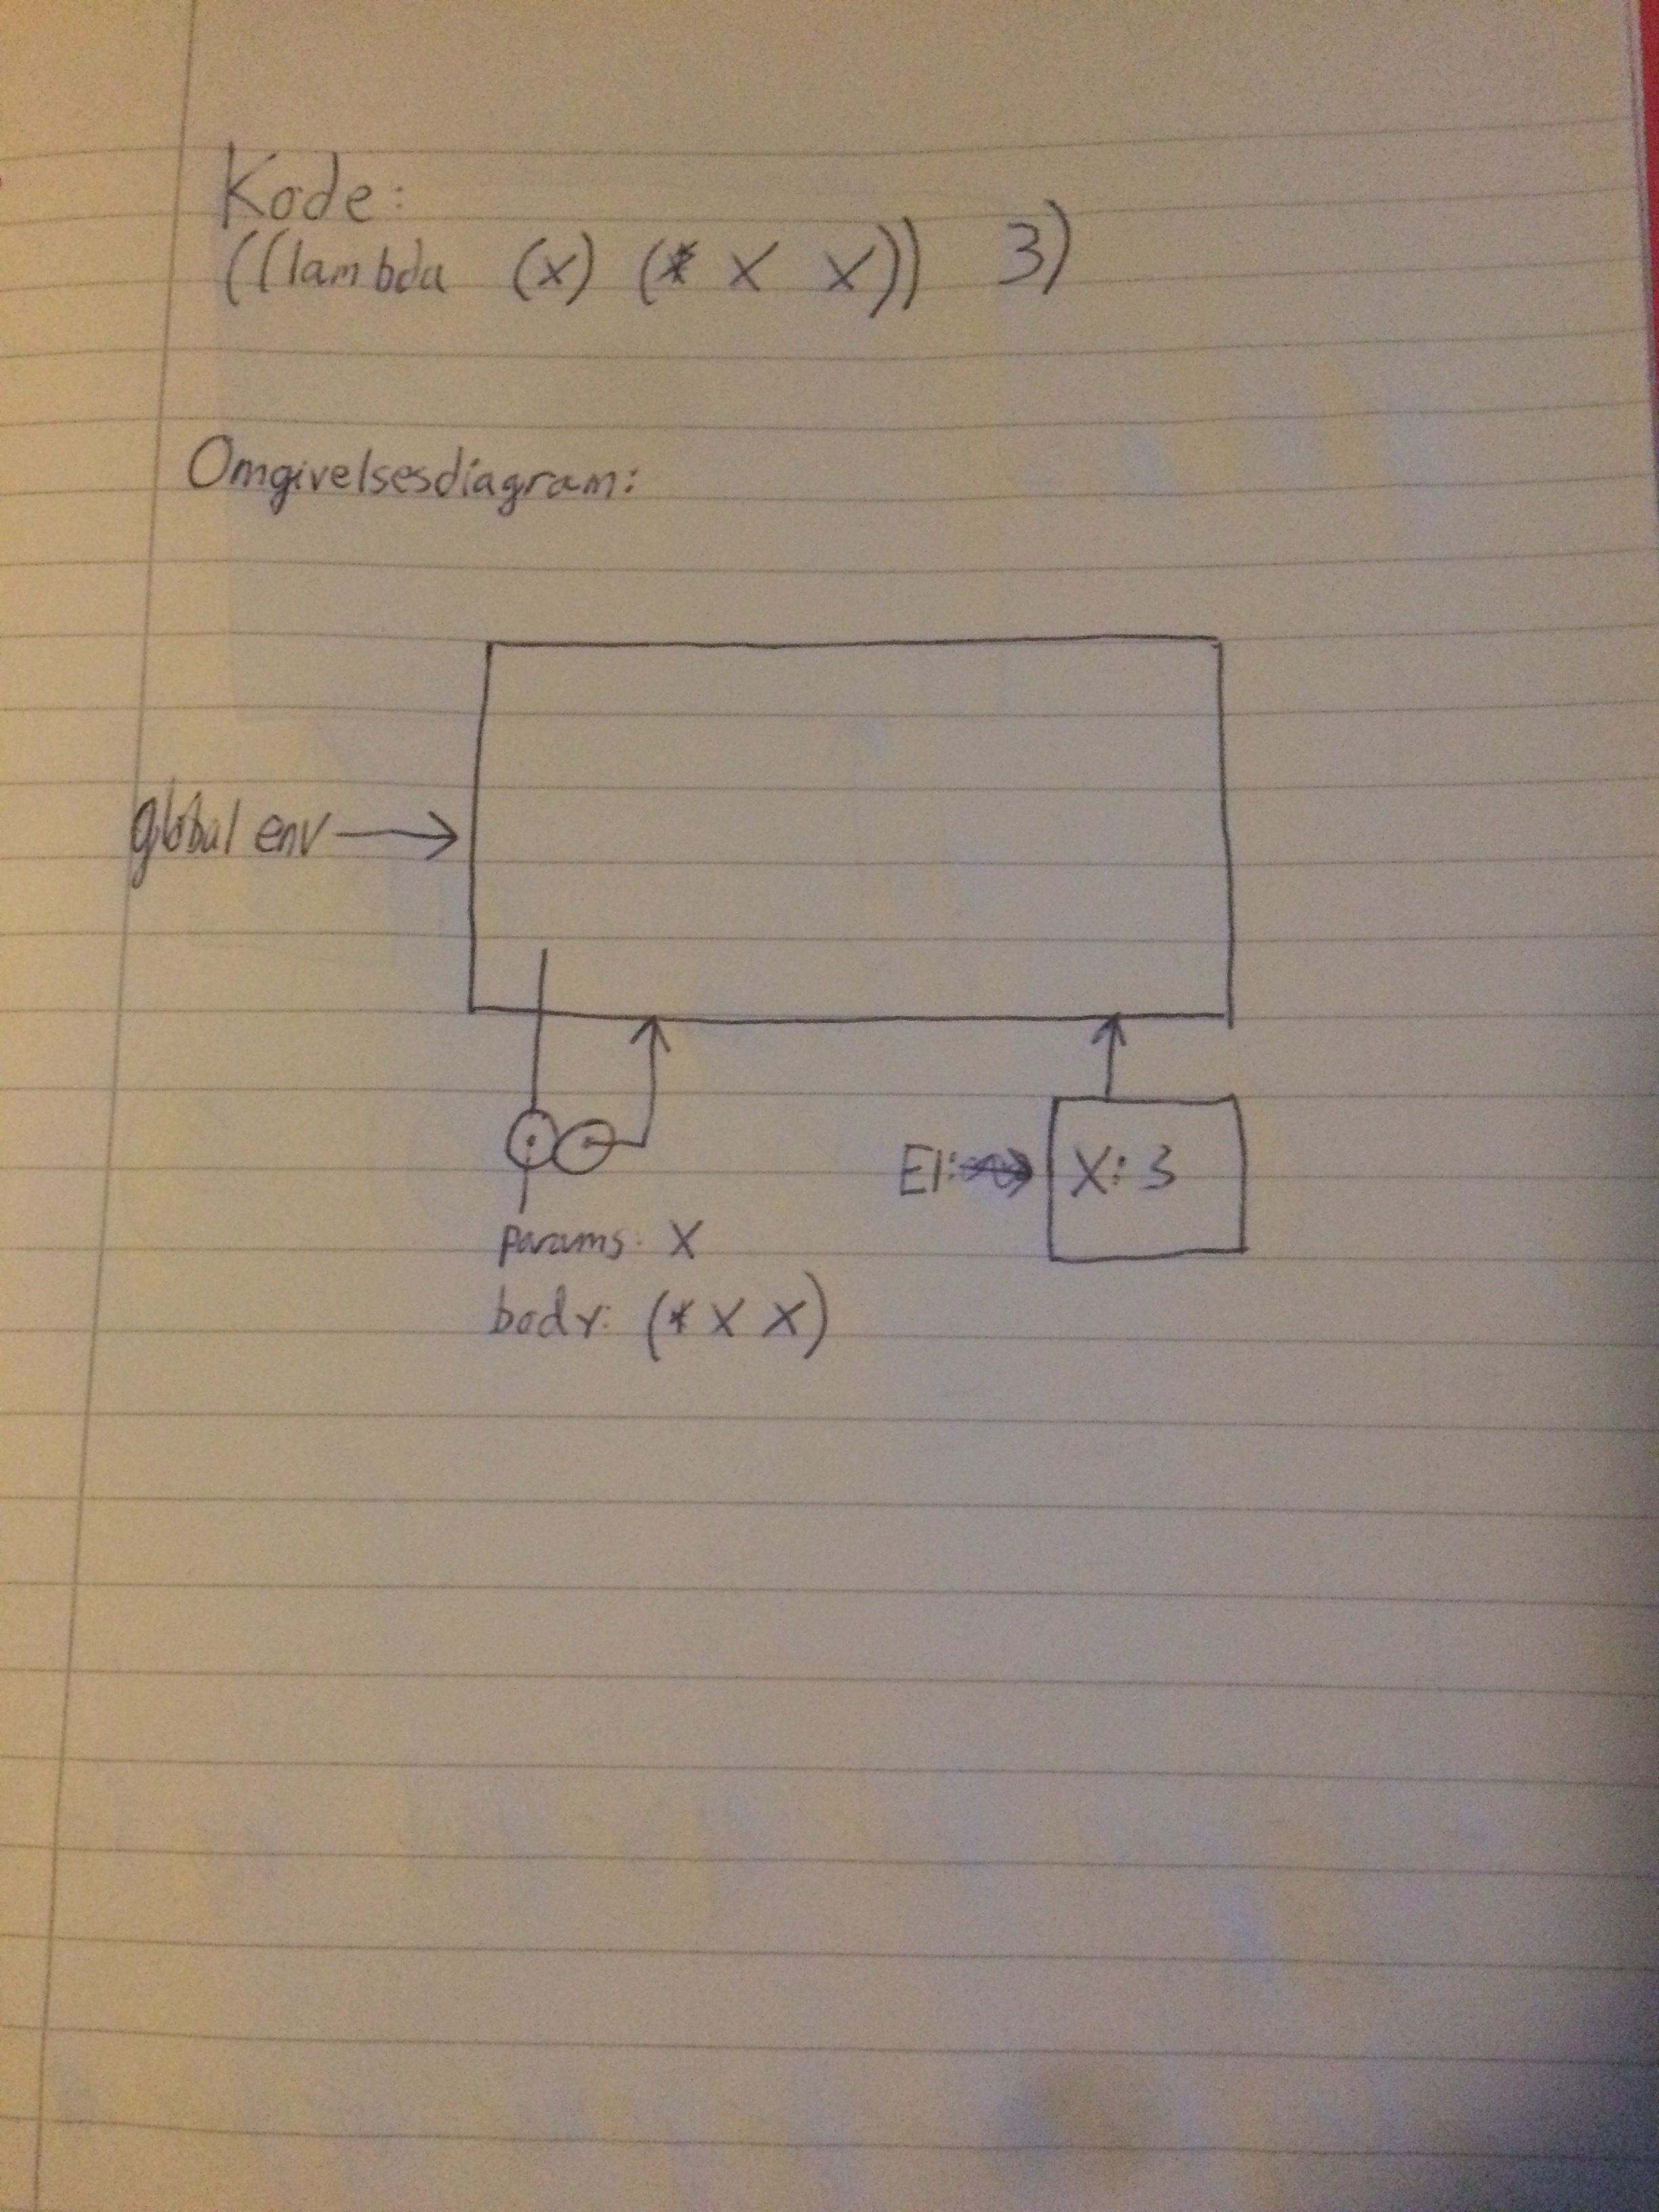 Kode:
((lambda (x) (* x x)) 3)
Omgivelsesdiagram:
global env
E1:
X: 3
params: X
body: (* X X)